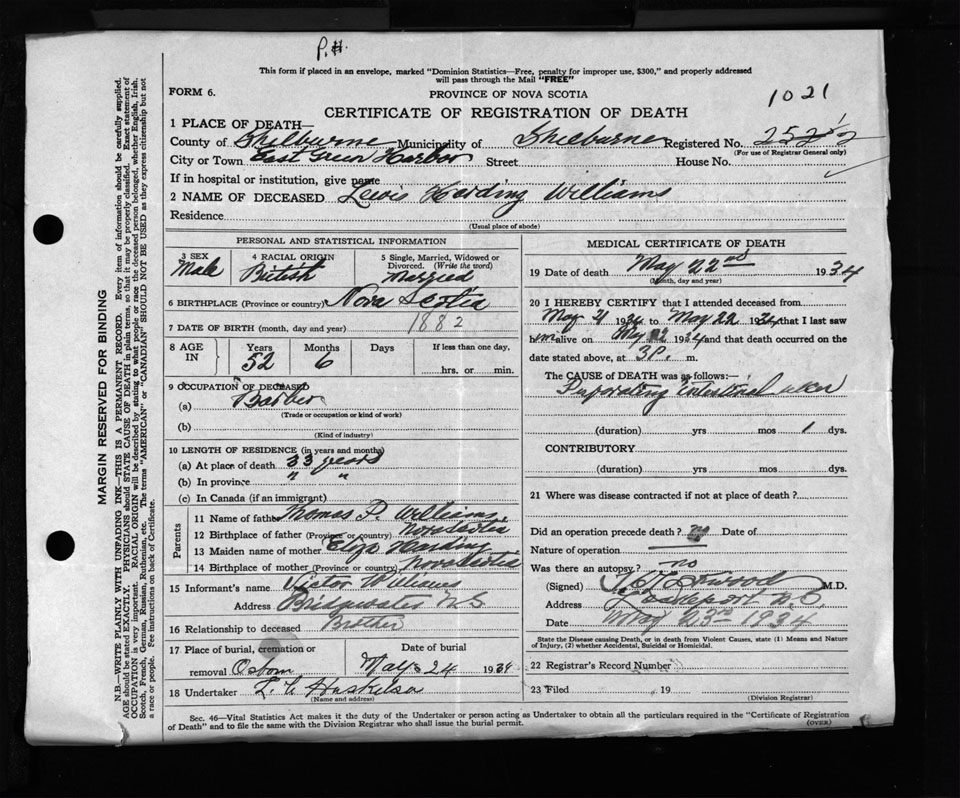 P.H.
This form if placed in an envelope, marked "Dominion Statistics—Free, penalty for improper use, $300," and properly addressed
will pass through the Mail "FREE"
FORM 6. PROVINCE OF NOVA SCOTIA 1021
CERTIFICATE OF REGISTRATION OF DEATH
1 PLACE OF DEATH—
County of Shelburne Municipality of Shelburne Registered No.
(For use of Registrar General only)
City or Town East Green Harbor Street House No.
If in hospital or institution, give name
2 NAME OF DECEASED Lewis Harding Williams
Residence
(Usual place of abode)
PERSONAL AND STATISTICAL INFORMATION
3 SEX 4 RACIAL ORIGIN 5 Single, Married, Widowed or
Divorced. (Write the word)
Male British Married
6 BIRTHPLACE (Province or country) Nova Scotia
7 DATE OF BIRTH (month, day and year) 1882
8 AGE IN Years Months Days If less than one day,
52 6 hrs. or min.
9 OCCUPATION OF DECEASED
(a) Barber
(Trade or occupation or kind of work)
(b)
(Kind of industry)
10 LENGTH OF RESIDENCE (in years and months)
(a) At place of death 33 years
(b) In province " "
(c) In Canada (if an immigrant)
Parents
11 Name of father Thomas P. Williams
12 Birthplace of father (Province or country) Nova Scotia
13 Maiden name of mother Eliza Harding
14 Birthplace of mother (Province or country) Nova Scotia
15 Informant's name Victor Williams
Address Bridgewater N.S
16 Relationship to deceased Brother
17 Place of burial, cremation or Date of burial
removal Osborn May 24 1934
18 Undertaker
(Name and address)
MEDICAL CERTIFICATE OF DEATH
19 Date of death May 22nd 1934
(Month, day and year)
20 I HEREBY CERTIFY that I attended deceased from
May 21 1934 to May 22 1934 that I last saw
him alive on May 22 1934 and that death occurred on the
date stated above, at 3 P. m.
The CAUSE of DEATH was as follows:—
Perforating intestinal ulcer
(duration) yrs mos 1 dys.
CONTRIBUTORY
(duration) yrs mos dys.
21 Where was disease contracted if not at place of death?
Did an operation precede death? no Date of
Nature of operation
Was there an autopsy? no
(Signed) M.D.
Address Lockeport N.S.
Date May 23rd 1934
State the Disease causing Death, or in death from Violent Causes, state (1) Means and Nature
of Injury, (2) whether Accidental, Suicidal or Homicidal.
22 Registrar's Record Number
23 Filed 19
(Division Registrar)
Sec. 46—Vital Statistics Act makes it the duty of the Undertaker or person acting as Undertaker to obtain all the particulars required in the "Certificate of Registration
of Death" and to file the same with the Division Registrar who shall issue the burial permit. (OVER)
MARGIN RESERVED FOR BINDING
N.B.—WRITE PLAINLY WITH UNFADING INK—THIS IS A PERMANENT RECORD. Every item of information should be carefully supplied.
AGE should be stated EXACTLY. PHYSICIANS should STATE CAUSE OF DEATH in plain terms, so that it may be properly classified. Exact statement of
OCCUPATION is very important. RACIAL ORIGIN will be described by stating to what people or race the deceased person belonged, whether English, Irish,
Scotch, French, German, Russian, Ruthenian, etc. The terms "AMERICAN" or "CANADIAN" SHOULD NOT BE USED as they express citizenship but not
a race or people. See instructions on back of Certificate.